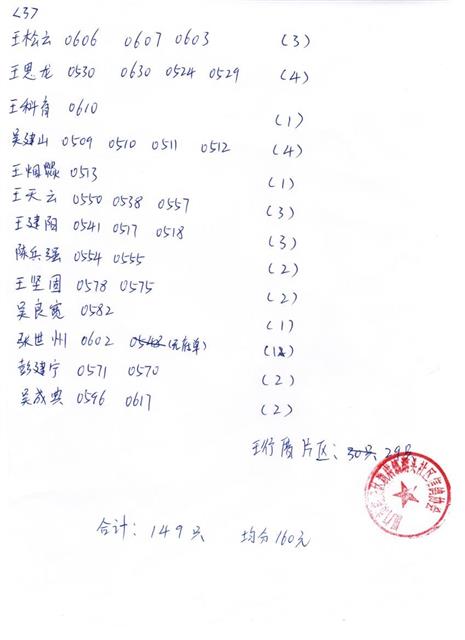 <37
王松云 0606 0607 0603 (3)
王思龙 0530 0630 0524 0529 (4)
王科育 0610 (1)
吴建山 0509 0510 0511 0512 (4)
王烟 0513 (1)
王天云 0550 0538 0557 (3)
王建阳 0541 0517 0518 (3)
陈兵强 0554 0555 (2)
王坚固 0578 0575 (2)
吴良宽 0582 (1)
张世州 0602 0548 (无存单) (1)
彭建宁 0571 0570 (2)
吴成典 0596 0617 (2)
片区: 30只 29只
合计: 149只 均分160元